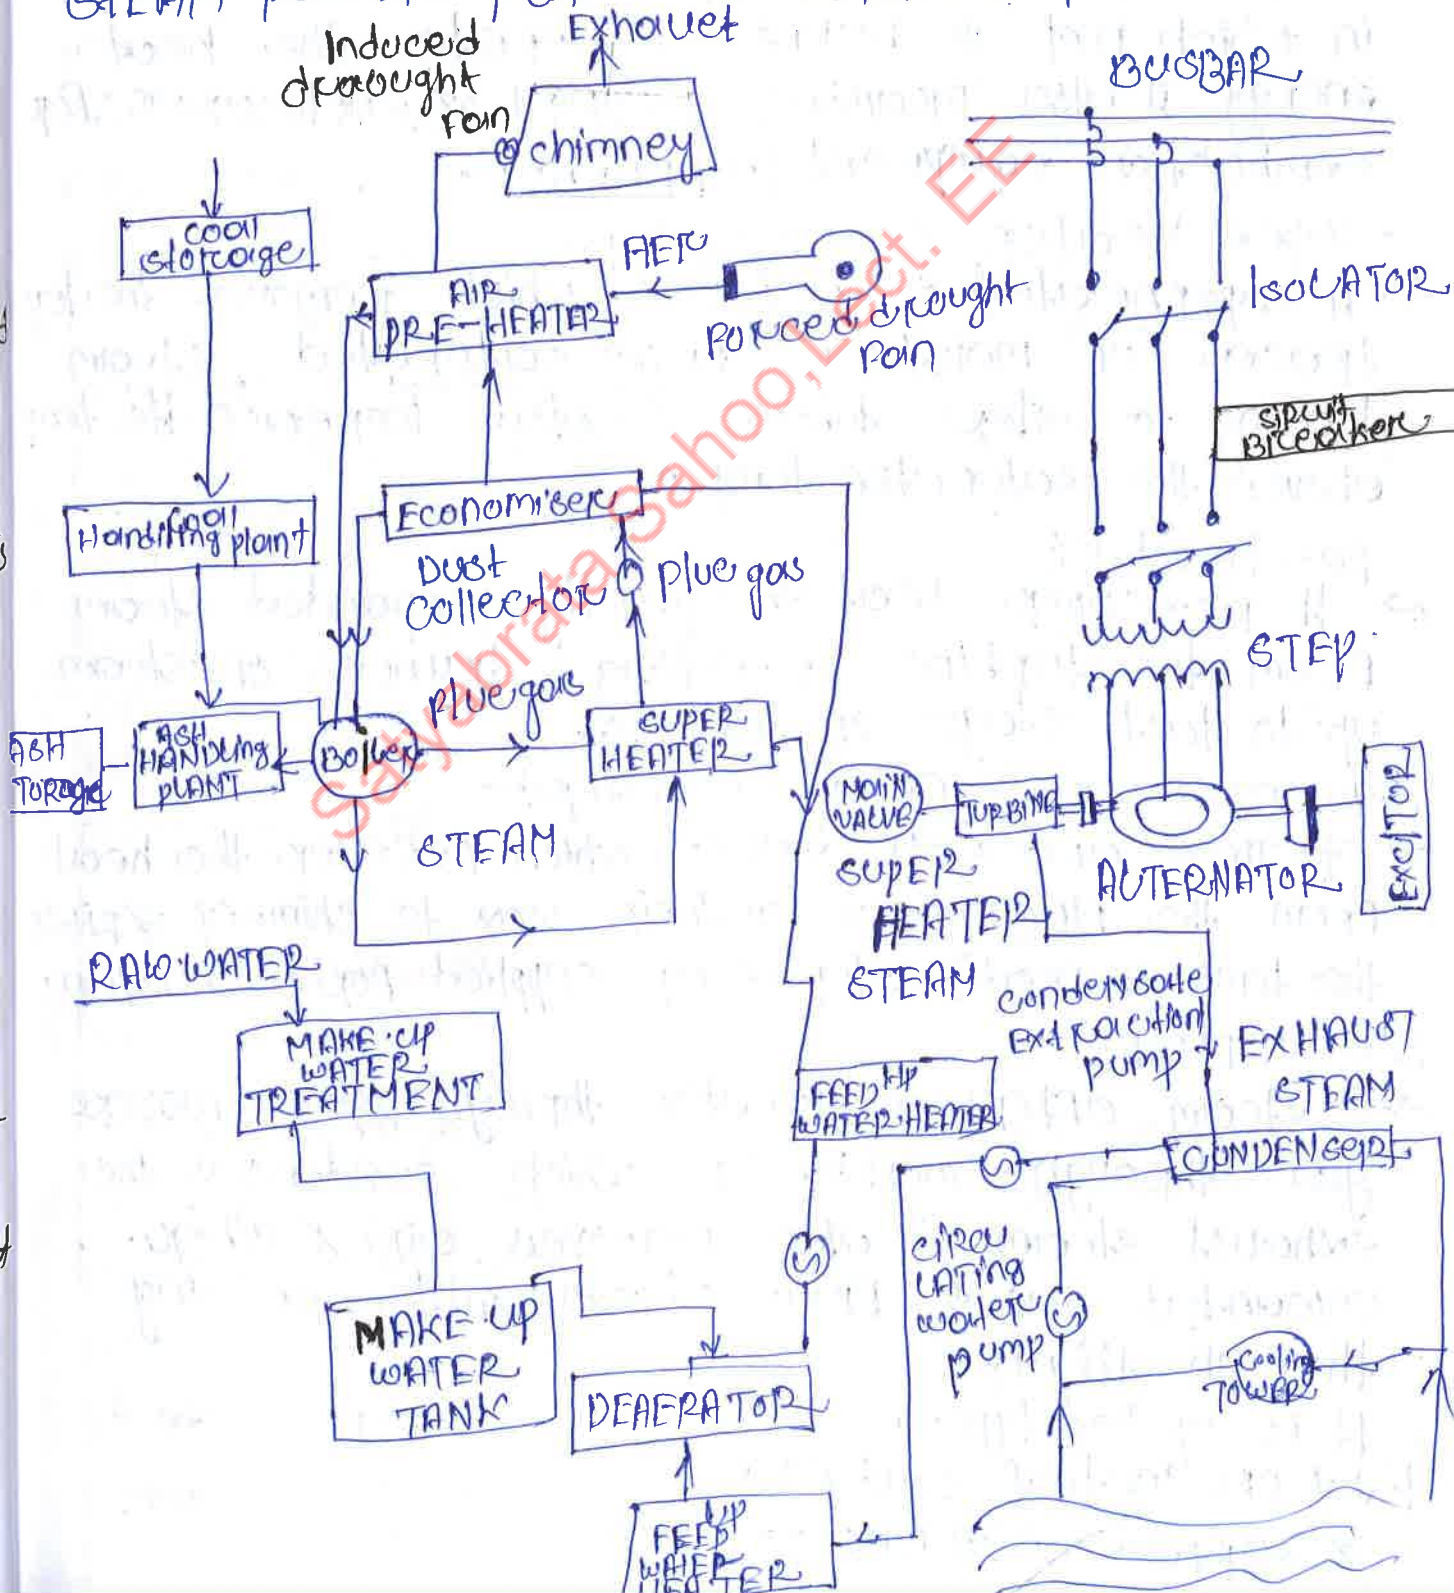 Exhauet
Induced
drought
Fan
chimney
BUSBAR
coal
storage
AER
AIR
PRE-HEATER
Forced drought
Fan
ISOLATOR
Sircuit
Breaker
Coal
Handling plant
Economiser
Dust
Collector
Flue gas
STEP
Flue gas
ASH
TORage
ASH
HANDLing
PLANT
Boiler
SUPER
HEATER
MaiN
VALVE
TURBINE
EXCITOR
ALTERNATOR
STEAM
SUPER
HEATER
STEAM
RAW WATER
MAKE-UP
WATER
TREATMENT
Condensate
Extraction
pump
EXHAUST
STEAM
FEED HP
WATER HEATER
CONDENSER
CIRCU
LATing
water
pump
MAKE-UP
WATER
TANK
DEAERATOR
Cooling
TOWER
LP
FEED
WATER
HEATER
Satyabrata Sahoo, Lect. EE